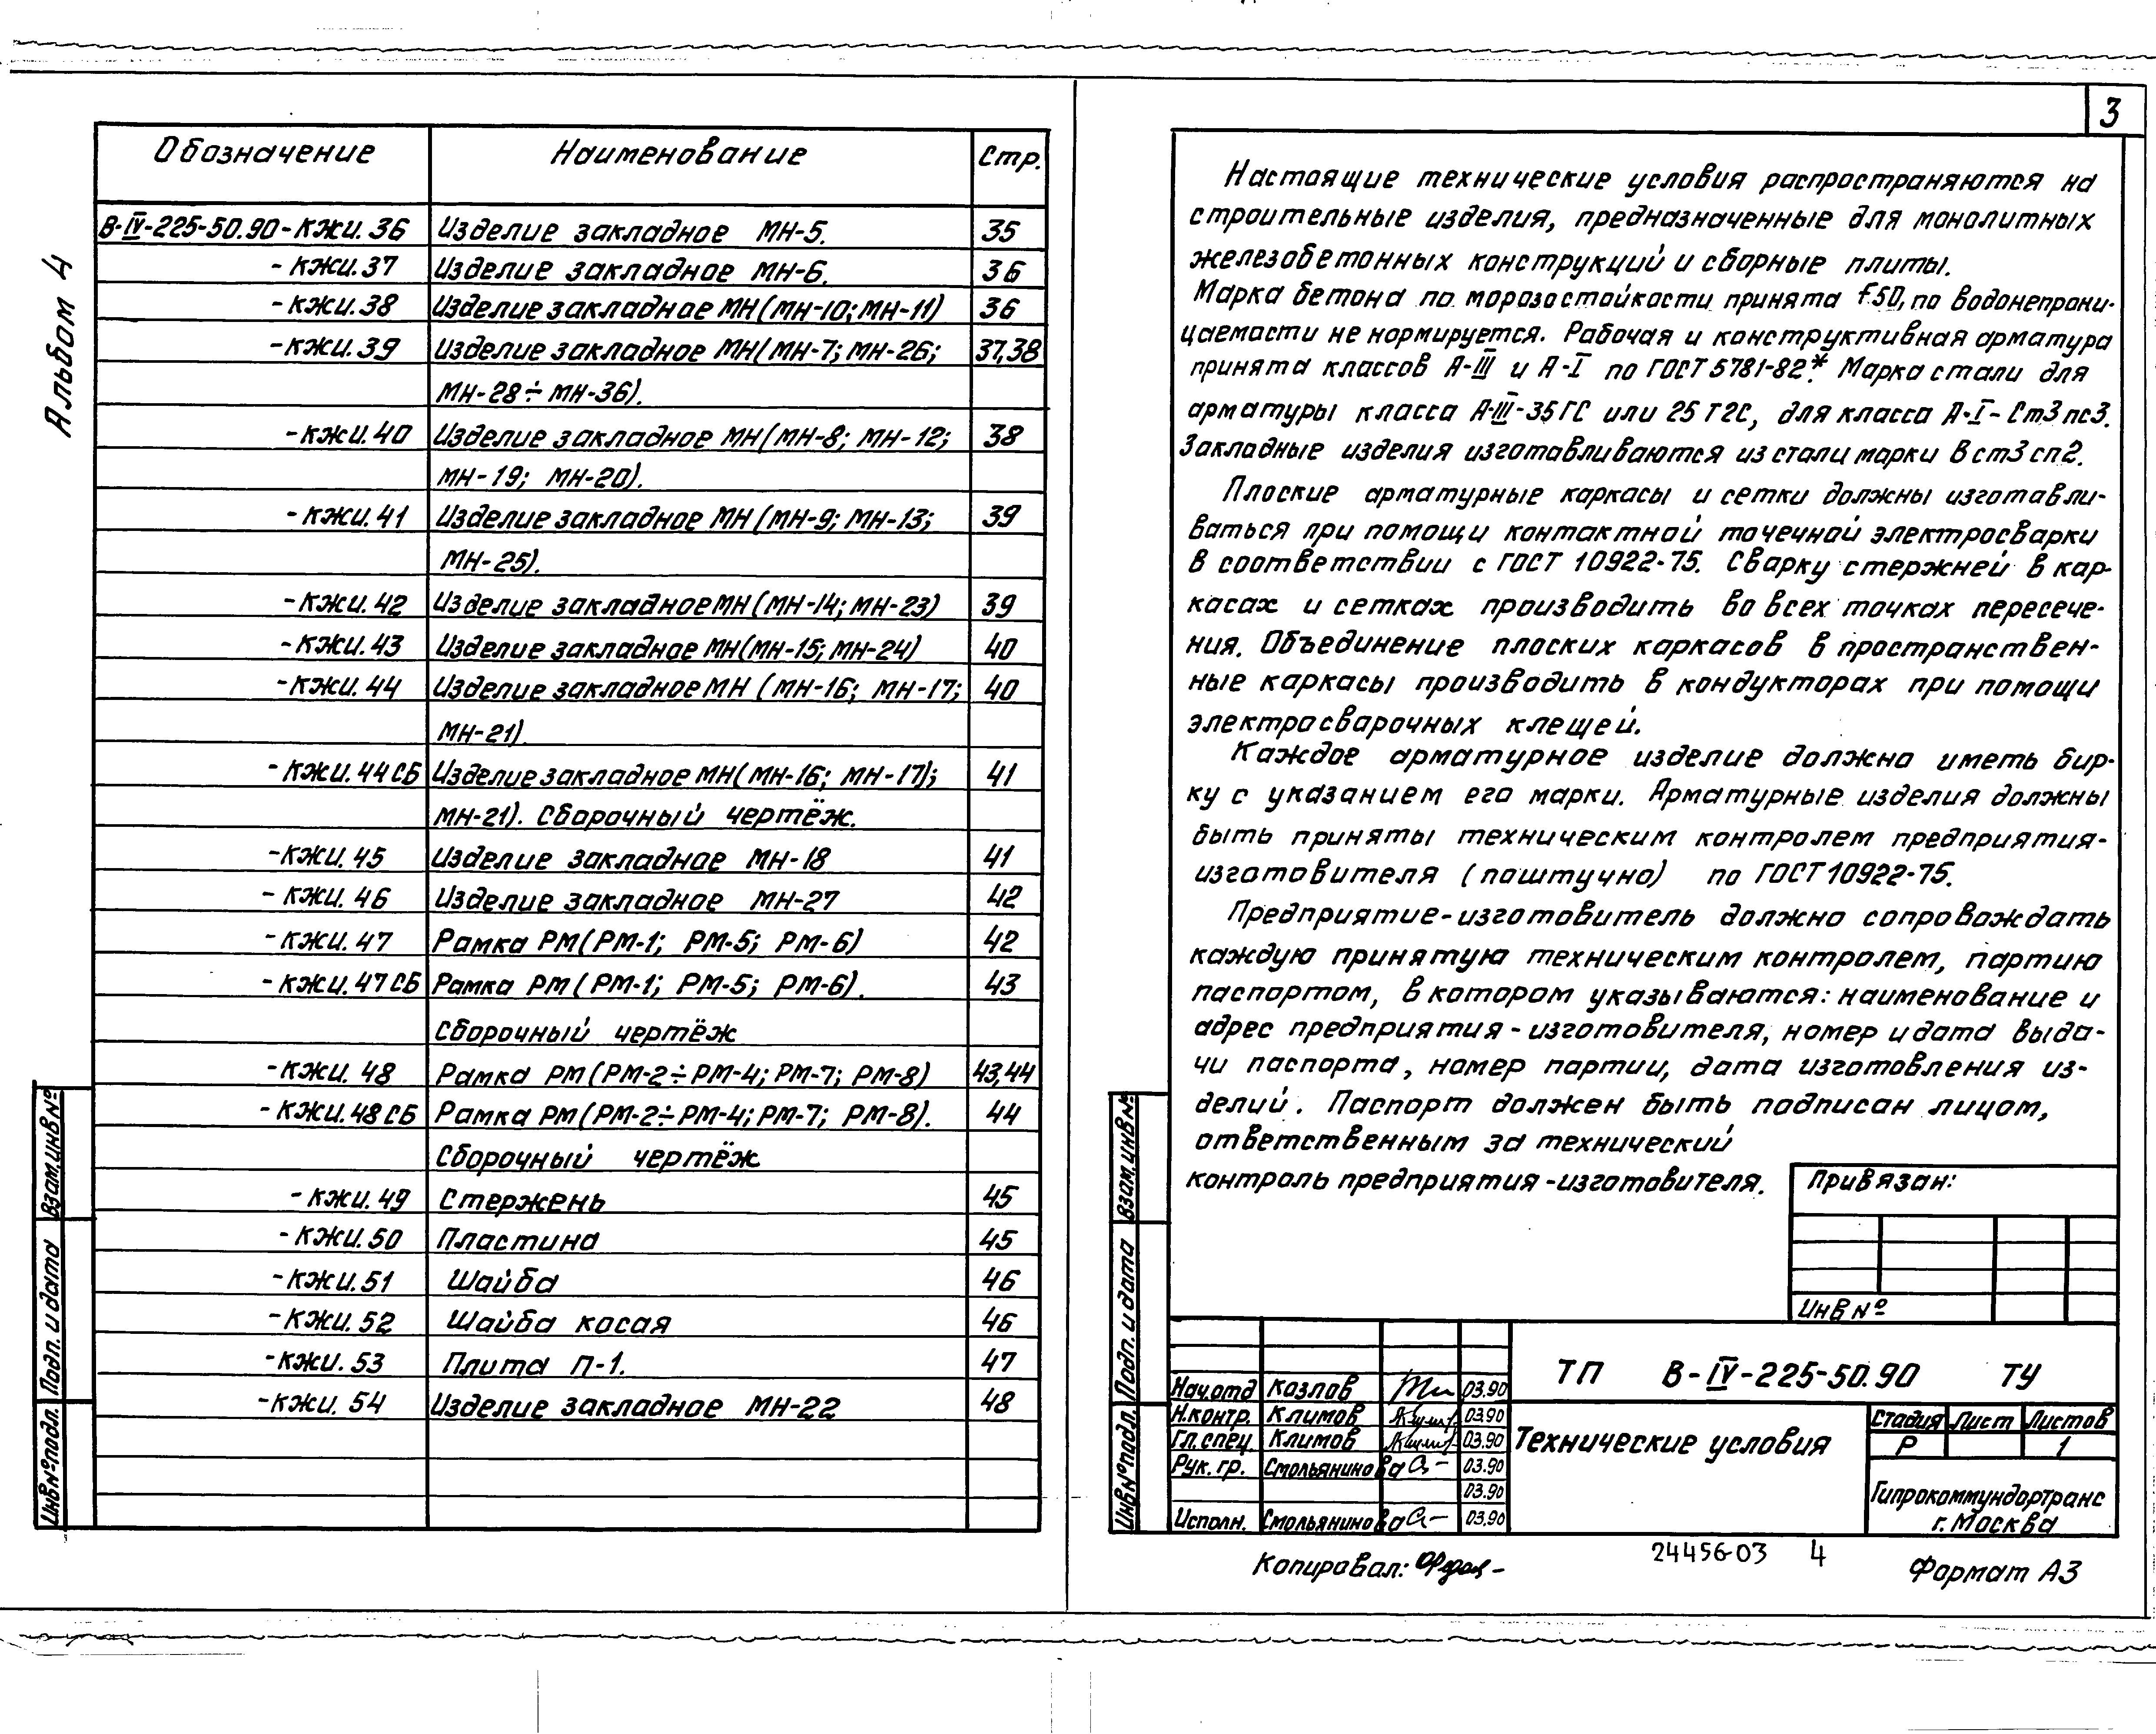 Альбом 4
Обозначение Наименование Стр.
В-IV-225-50.90-КЖИ.36 Изделие закладное МН-5. 35
-КЖИ.37 Изделие закладное МН-6. 36
-КЖИ.38 Изделие закладное МН(МН-10; МН-11) 36
-КЖИ.39 Изделие закладное МН(МН-7; МН-26; 37,38
МН-28÷МН-36).
-КЖИ.40 Изделие закладное МН(МН-8; МН-12; 38
МН-19; МН-20).
-КЖИ.41 Изделие закладное МН(МН-9; МН-13; 39
МН-25).
-КЖИ.42 Изделие закладное МН(МН-14; МН-23) 39
-КЖИ.43 Изделие закладное МН(МН-15; МН-24) 40
-КЖИ.44 Изделие закладное МН (МН-16; МН-17; 40
МН-21).
-КЖИ.44СБ Изделие закладное МН(МН-16; МН-17); 41
МН-21). Сборочный чертёж.
-КЖИ.45 Изделие закладное МН-18 41
-КЖИ.46 Изделие закладное МН-27 42
-КЖИ.47 Рамка РМ(РМ-1; РМ-5; РМ-6) 42
-КЖИ.47СБ Рамка РМ(РМ-1; РМ-5; РМ-6). 43
Сборочный чертёж
-КЖИ.48 Рамка РМ(РМ-2÷РМ-4; РМ-7; РМ-8) 43,44
-КЖИ.48СБ Рамка РМ(РМ-2÷РМ-4; РМ-7; РМ-8). 44
Сборочный чертёж
-КЖИ.49 Стержень 45
-КЖИ.50 Пластина 45
-КЖИ.51 Шайба 46
-КЖИ.52 Шайба косая 46
-КЖИ.53 Плита П-1. 47
-КЖИ.54 Изделие закладное МН-22 48
Взам.инв№
Подп. и дата
Инв№подл.
3
Настоящие технические условия распространяются на
строительные изделия, предназначенные для монолитных
железобетонных конструкций и сборные плиты.
Марка бетона по морозостойкости принята F50, по водонепрони-
цаемости не нормируется. Рабочая и конструктивная арматура
принята классов А-III и А-I по ГОСТ 5781-82*. Марка стали для
арматуры класса А-III-35ГС или 25Г2С, для класса А-I-Ст3пс3.
Закладные изделия изготавливаются из стали марки Вст3сп2.
Плоские арматурные каркасы и сетки должны изготавли-
ваться при помощи контактной точечной электросварки
в соответствии с ГОСТ 10922-75. Сварку стержней в кар-
касах и сетках производить во всех точках пересече-
ния. Объединение плоских каркасов в пространствен-
ные каркасы производить в кондукторах при помощи
электросварочных клещей.
Каждое арматурное изделие должно иметь бир-
ку с указанием его марки. Арматурные изделия должны
быть приняты техническим контролем предприятия-
изготовителя (поштучно) по ГОСТ 10922-75.
Предприятие-изготовитель должно сопровождать
каждую принятую техническим контролем, партию
паспортом, в котором указываются: наименование и
адрес предприятия-изготовителя, номер и дата выда-
чи паспорта, номер партии, дата изготовления из-
делий. Паспорт должен быть подписан лицом,
ответственным за технический
контроль предприятия-изготовителя.
Привязан:
Инв№
Взам.инв№
Подп. и дата
Инв№подл.
ТП В-IV-225-50.90 ТУ
Нач.отд Козлов 03.90
Н.контр. Климов 03.90
Гл.спец. Климов 03.90
Рук.гр. Смольянинова 03.90
03.90
Исполн. Смольянинова 03.90
Технические условия
Стадия Лист Листов
Р 1
Гипрокоммундортранс
г.Москва
Копировал:
24456-03 4
Формат А3